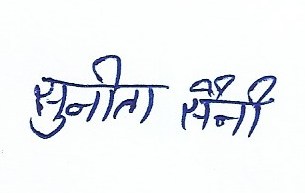 सुनीता सैनी